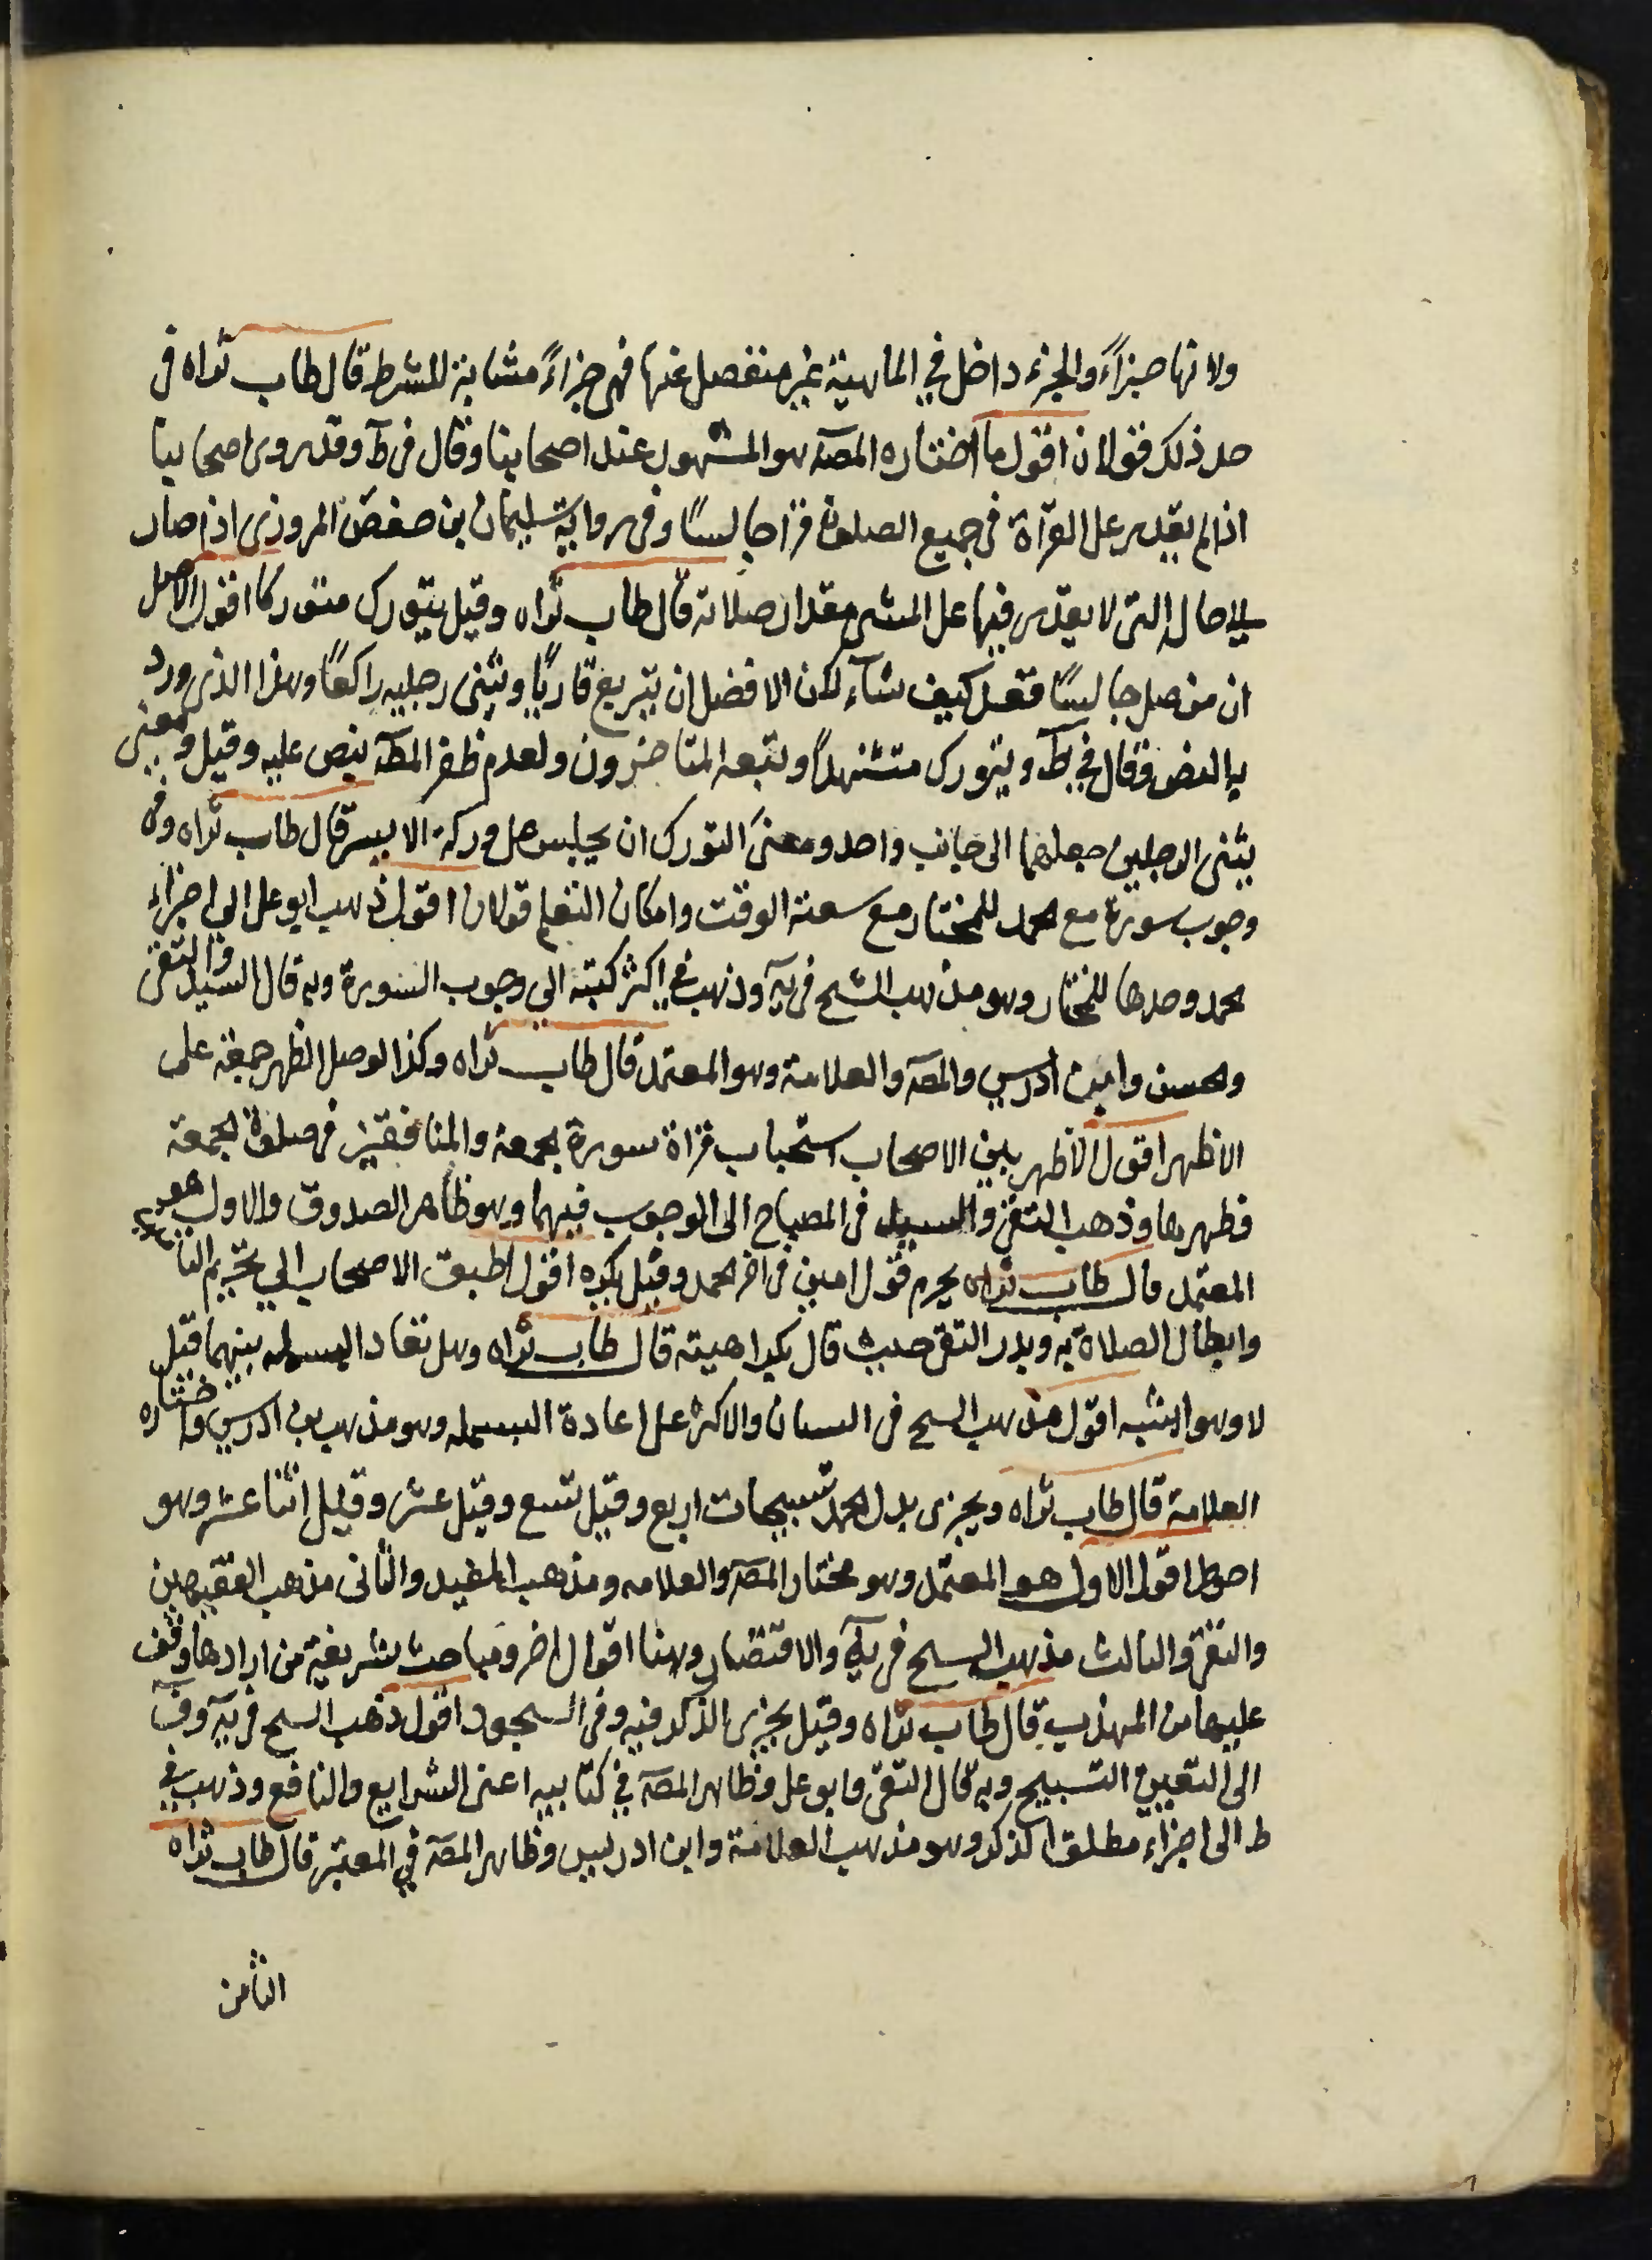 ولانها جزاً والجزء داخل في الماهية غير منفصل عنها فهي جزاً مشابهة للشرط قال طاب ثراه في
حد ذلك قولان اقول ما اختاره المصّ هو المشهور عند اصحابنا وقال في ط وقد روى اصحابنا
اذا لم يقدر على القرآة في جميع الصلوة قرا جالساً وفي رواية سليمان بن حفص المروزي اذا صار
الى حال التى لا يقدر فيها على المشى مقدار صلاته قال طاب ثراه وقيل يتورك متوركا اقول الاصل
ان من صلى جالساً فعل كيف شآء لكن الافضل ان يتربع قارياً ويثنى رجليه راكعاً وهذا الذى ورد
به النص وقال في ط ويتورك متشهداً وتبعه المتاخرون ولعدم ظفر المصّ بنص عليه وقيل ومعنى
يثنى الرجلين جعلهما الى جانب واحد ومعنى التورك ان يجلس على وركه الايسر قال طاب ثراه وفي
وجوب سورة مع الحمد للمختار مع سعة الوقت وامكان التعلم قولان اقول ذهب ابو على الى اجزاء
الحمد وحدها للمختار وهو مذهب الشيخ في يه وذهب في اكثر كتبه الى وجوب السورة وبه قال السيد والتقى
والحسن وابن ادريس والمصّ والعلامة وهو المعتمد قال طاب ثراه وكذا لو صلى الظهر جمعة على
الاظهر اقول الاظهر بين الاصحاب استحباب قراة سورة الجمعة والمنافقين في صلوة الجمعة
وظهرها وذهب التقى والسيد في المصباح الى الوجوب فيهما وهو ظاهر الصدوق والاول هو
المعتمد قال طاب ثراه يحرم قول امين في اخر الحمد وقيل يكره اقول اطبق الاصحاب الى تحريم التامين
وابطال الصلاة به وبدر التقى حيث قال بكراهيته قال طاب ثراه وهل تعاد البسمله بينهما قيل
لا وهو اشبه اقول مذهب الشيخ في التبيان والاكثر على اعادة البسمله وهو مذهب بن ادريس واختاره
العلامة قال طاب ثراه ويجزى بدل الحمد تسبيحات اربع وقيل تسع وقيل عشر وقيل اثنا عشر وهو
احوط اقول الاول هو المعتمد وهو مختار المصّ والعلامه ومذهب المفيد والثانى مذهب الفقيهين
والتقى والثالث مذهب الشيخ في يه والاقتصاد وهنا اقوال اخر ومباحث شريفة من ارادها وقف
عليها من المهذب قال طاب ثراه وقيل يجزى الذكر فيه وفي السجود اقول ذهب الشيخ في يه وف
الى التعيين التسبيح وبه قال التقى وابو على وظاهر المصّ في كتابيه اعنى الشرايع والنافع وذهب في
ط الى اجزاء مطلق الذكر وهو مذهب العلامة وابن ادريس وظاهر المصّ في المعتبر قال طاب ثراه
الثامن